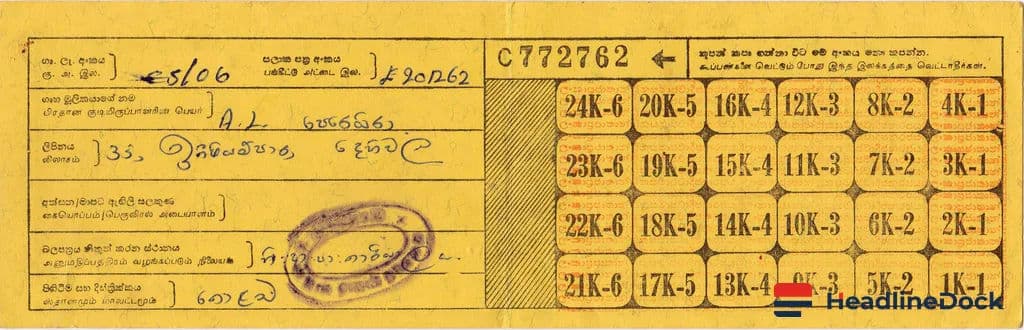 ගෘ. ලැ. අංකය
කු. அ. இல.
පලාක පත්‍ර අංකය
பங்கீட்டு அட்டை இல.
ES/06
E901262
C772762
කූපන් කපා ගන්නා විට මේ අංකය නො කපන්න.
கூப்பன்களை வெட்டும் போது இந்த இலக்கத்தை வெட்டாதீர்கள்.
ගෘහ මූලිකයාගේ නම
பிரதான குடியிருப்பாளரின் பெயர்
A. L. පෙරේරා
ලිපිනය
விலாசம்
දෙහිවල
අත්සන/මාපට ඇඟිලි සලකුණ
கையொப்பம்/பெருவிரல் அடையாளம்
බලපත්‍රය නිකුත් කරන ස්ථානය
அனுமதிப்பத்திரம் வழங்கப்படும் நிலையம்
පිහිටීම සහ දිස්ත්‍රික්කය
ஸ்தானமும் மாவட்டமும்
කොළඹ
24K-6 20K-5 16K-4 12K-3 8K-2 4K-1
23K-6 19K-5 15K-4 11K-3 7K-2 3K-1
22K-6 18K-5 14K-4 10K-3 6K-2 2K-1
21K-6 17K-5 13K-4 9K-3 5K-2 1K-1
HeadlineDock